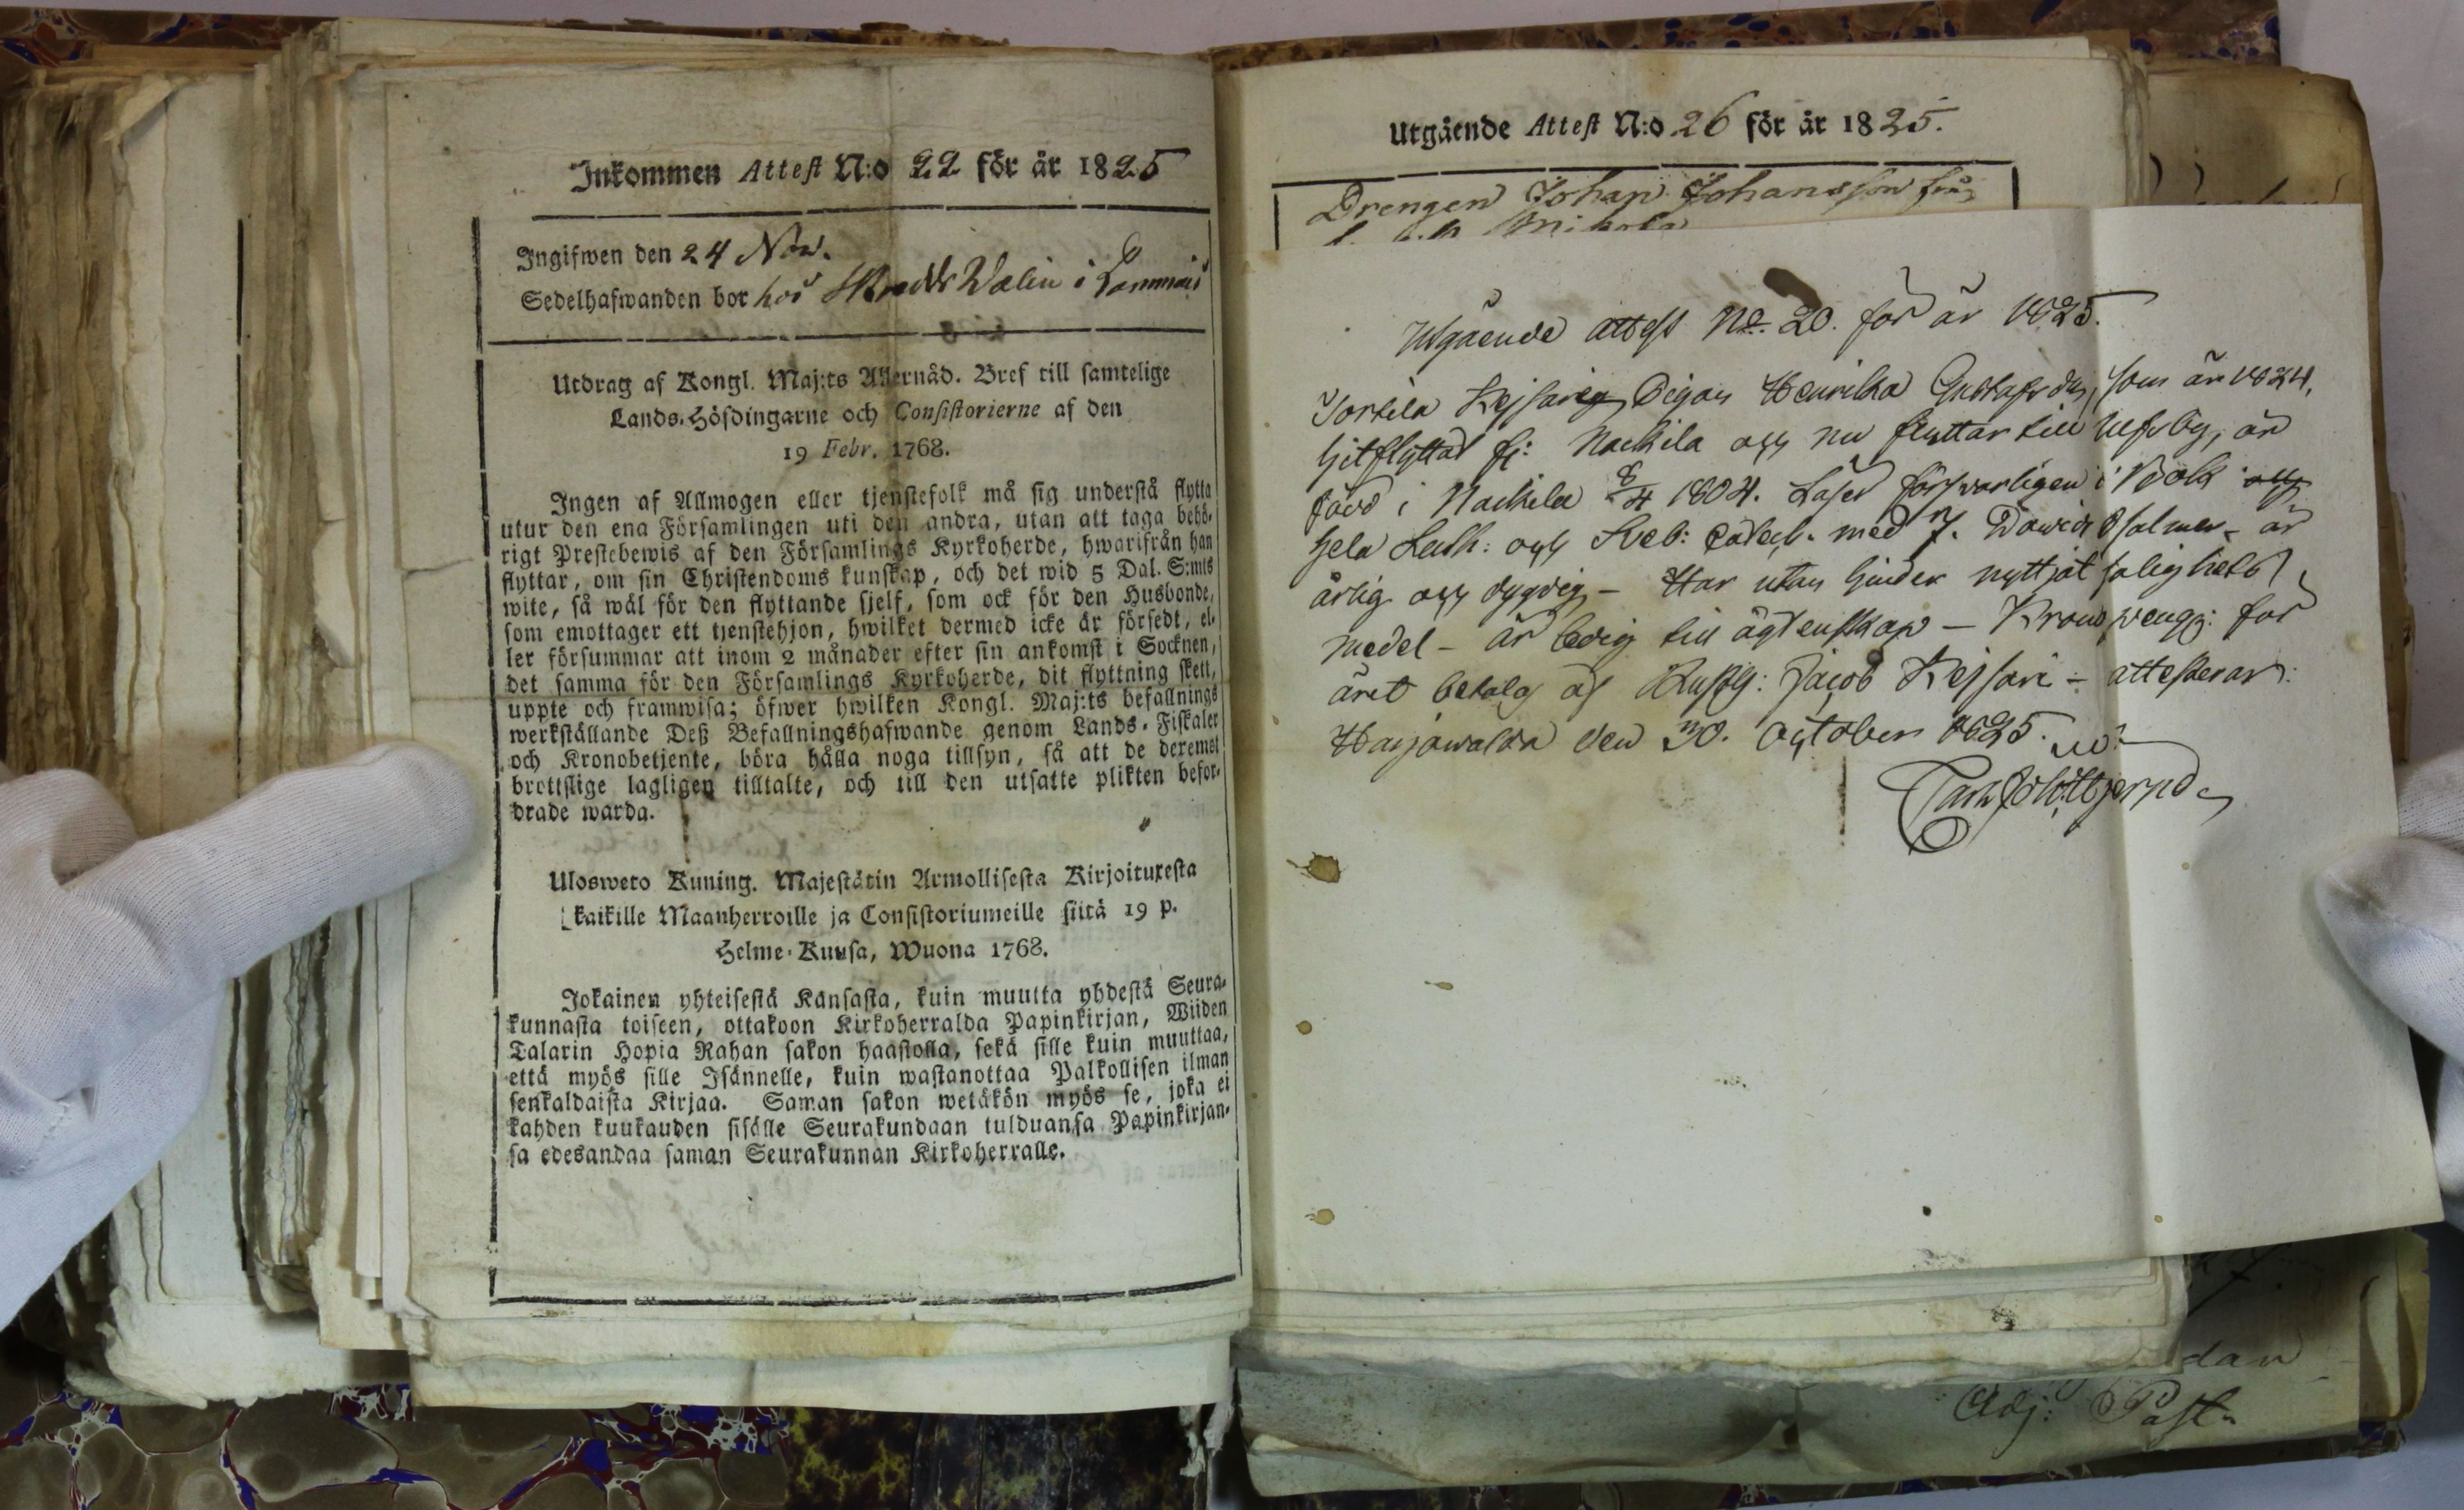 Inkommen Attest N:o 22 för år 1825
Ingifwen den 24 Nov.
Sedelhafwanden bor hos Walin i
Utdrag af Kongl. Maj:ts Allernåd. Bref till samtelige
Lands-Höfdingarne och Consistorierne af den
19 Febr. 1768.
Ingen af Allmogen eller tjenstefolk må sig understå flytta
utur den ena Församlingen uti den andra, utan att taga behö-
rigt Prestebewis af den Församlings Kyrkoherde, hwarifrån han
flyttar, om sin Christendoms kunskap, och det wid 5 Dal. S:mts
wite, så wäl för den flyttande sjelf, som ock för den Husbonde,
som emottager ett tjenstehjon, hwilket dermed icke är försedt, el-
ler försummar att inom 2 månader efter sin ankomst i Socknen,
det samma för den Församlings Kyrkoherde, dit flyttning skett,
uppte och framwisa; öfwer hwilken Kongl. Maj:ts befallnings
werkställande Deß Befallningshafwande genom Lands-Fiskaler
och Kronobetjente, böra hålla noga tillsyn, så att de deremot
brottslige lagligen tilltalte, och till den utsatte plikten befor-
drade warda.
Ulosweto Kuning. Majestätin Armollisesta Kirjoituxesta
kaikille Maanherroille ja Consistoriumeille siitä 19 p.
Helme-Kuusa, Wuona 1768.
Jokainen yhteisestä Kansasta, kuin muutta yhdestä Seura-
kunnasta toiseen, ottakoon Kirkoherralda Papinkirjan, Wiiden
Talarin Hopia Rahan sakon haastolla, sekä sille kuin muuttaa,
että myös sille Isännelle, kuin wastanottaa Palkollisen ilman
senkaldaista Kirjaa. Saman sakon wetäkön myös se, joka ei
kahden kuukauden sisälle Seurakundaan tulduansa Papinkirjan-
sa edesandaa saman Seurakunnan Kirkoherralle.
Utgående Attest N:o 26 för år 1825.
Drengen Johan Johansson från
Utgående attest No. 20. för år 1825.
Jortila Kejsari Pigan Henrika Gustafsdr, som år 1824,
hitflyttat fr: Nackila och nu flyttar till Ulfsby, är
född i Nackila 8/4 1804. Läser försvarligen i Bok och
hela Luth: och Sveb: Catech. med 7. Davids Psalmer - är
ärlig och dygdig - Har utan hinder nyttjat salighets
medel - är ledig till ägtenskap - Kronopengg: för
året betalas af Rusth: Jacob Kejsari - attesterar:
Harjawalda den 30. October 1825.
dan
Adj: Past.